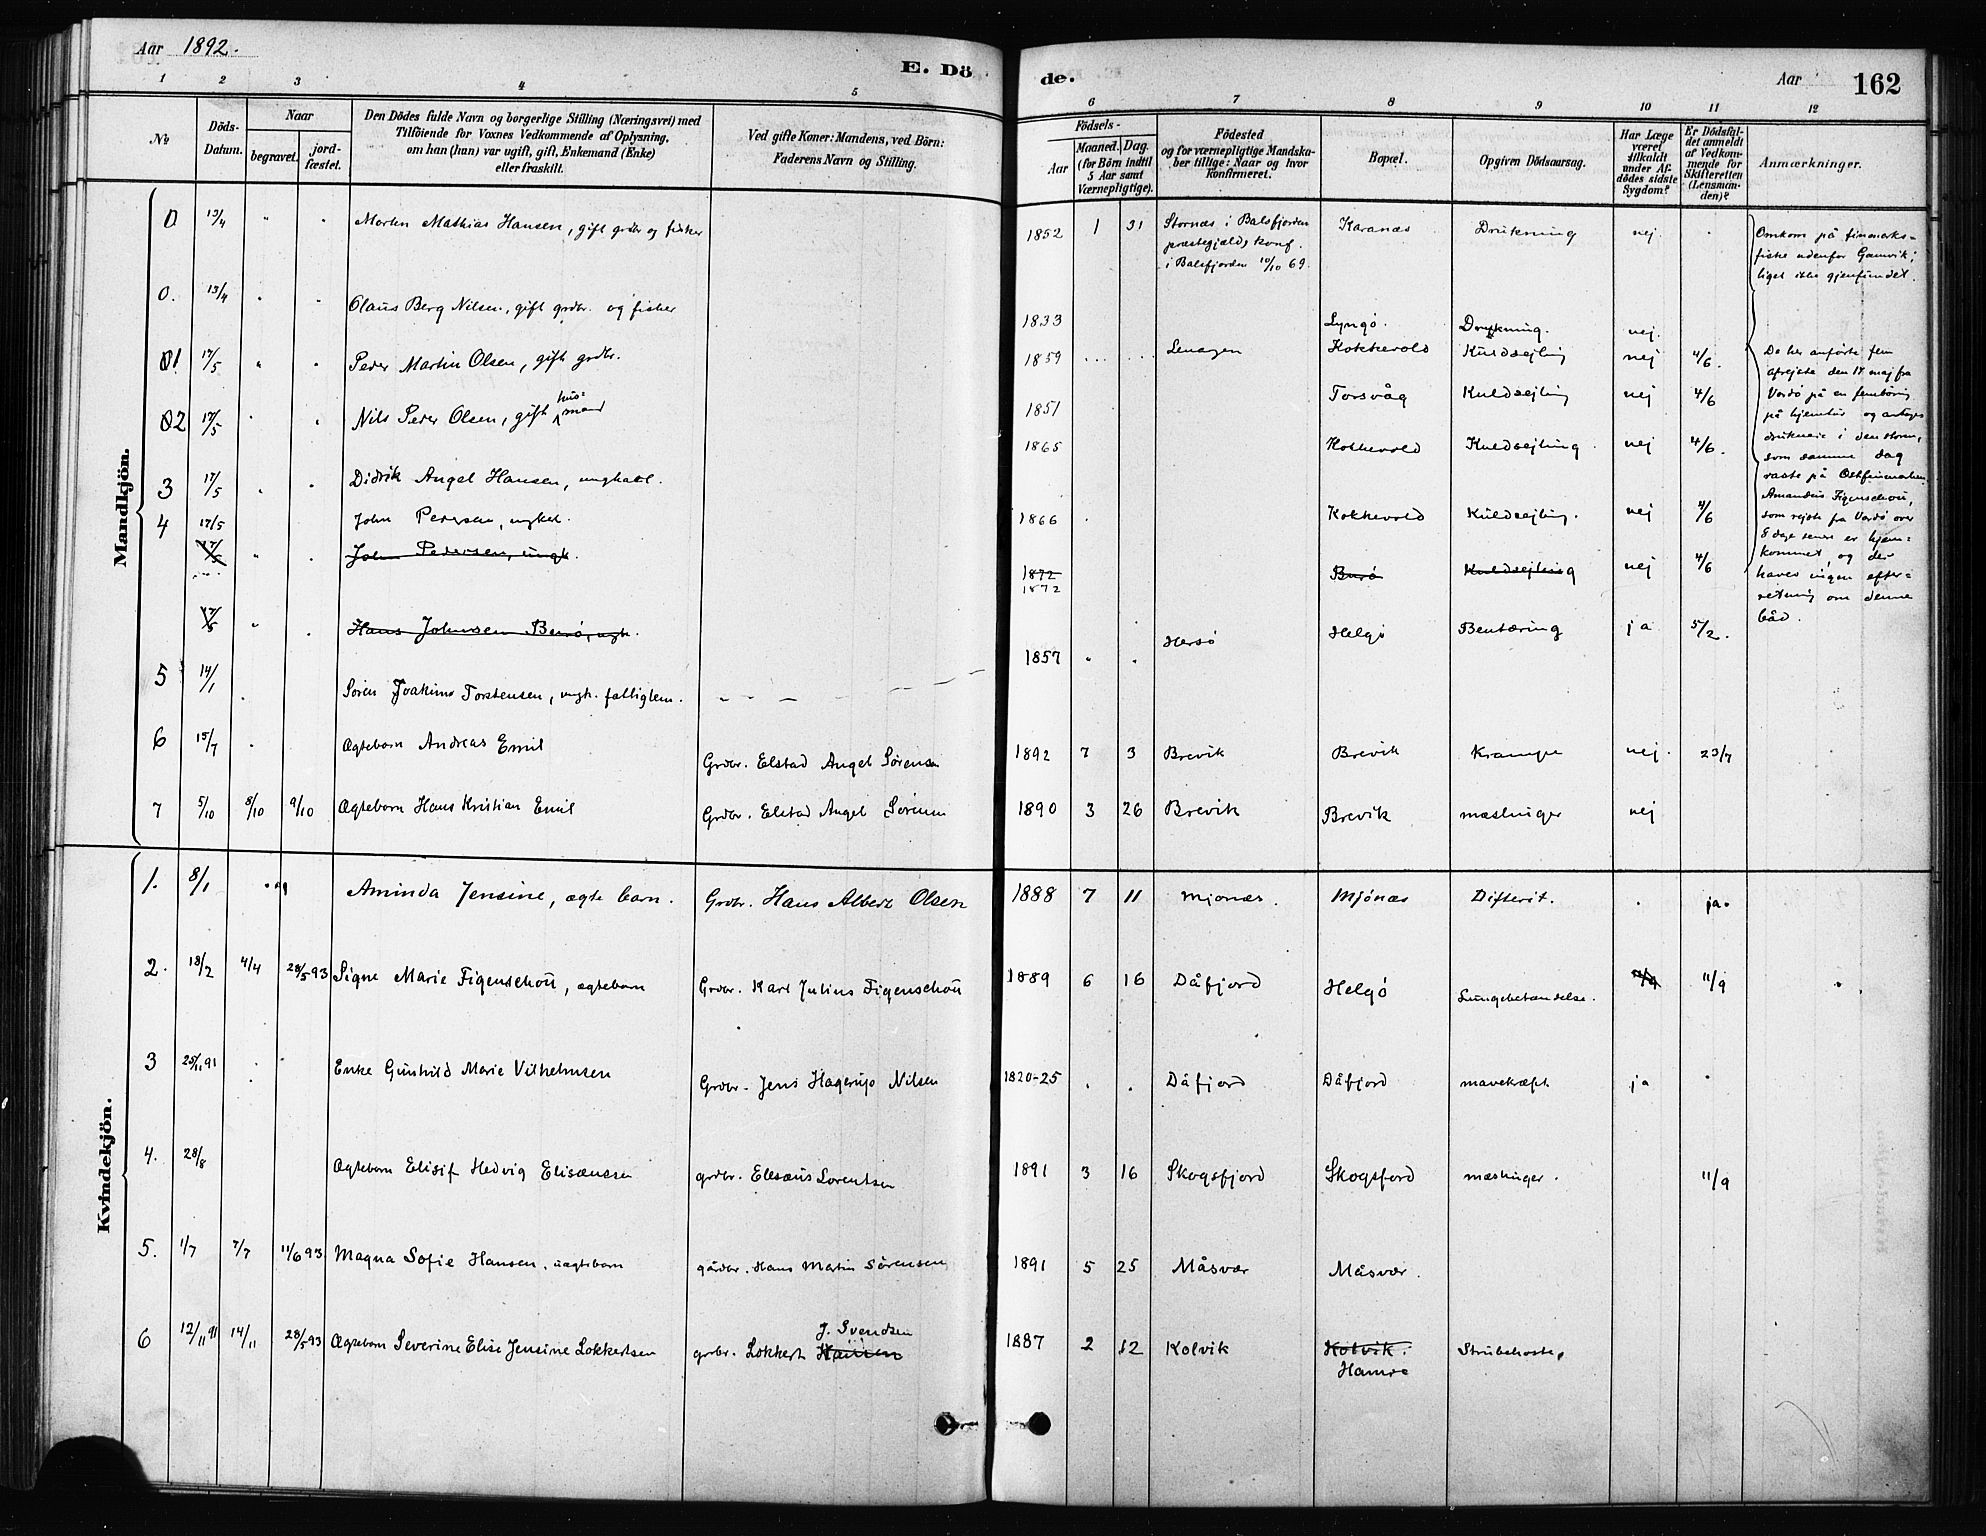 Aar 1892.
E. Dö
de.
Aar
162
1 2 3 4 5 6 7 8 9 10 11 12
No
Döds-Datum.
Naar
begravet.
jord-fæstet.
Den Dödes fulde Navn og borgerlige Stilling (Næringsvei) med
Tilföiende for Voxnes Vedkommende af Oplysning,
om han (hun) var ugift, gift, Enkemand (Enke)
eller fraskilt.
Ved gifte Koner: Mandens, ved Börn:
Faderens Navn og Stilling.
Födsels-
Aar
Maaned. Dag.
(for Börn indtil
5 Aar samt
Værnepligtige).
Födested
og for værnepligtige Mandska-
ber tillige: Naar og hvor
konfirmeret.
Bopæl.
Opgiven Dödsaarsag.
Har Læge
været
tilkaldt
under Af-
dödes sidste
Sygdom?
Er Dödsfal-
det anmeldt
af Vedkom-
mende for
Skifteretten
(Lensman-
den)?
Anmærkninger.
Mandkjön.
0 13/4 " " Morten Mathias Hansen, gift grdbr og fisker 1852 1 31 Stornæs i Balsfjorden Karanæs Drukning nej.
præstegjæld, konf.
i Balsfjorden 10/10 69.
Omkom på finmarks-
fiske udenfor Gamvik;
liget ikke gjenfundet.
0. 13/4 " " Olaus Berg Nilsen, gift grdbr. og fisker 1833 Lyngö. Drukning. nej.
01. 17/5 " " Peder Martin Olsen, gift grdbr. 1859 Lenangen Kokkevold Kuldsejling nej 4/6.
02 17/5 Nils Peder Olsen, gift husmand 1851 Torsvåg Kuldsejling nej 4/6
3 17/5 Didrik Angel Hansen, ungkarl. 1865 Kokkevold Kuldsejling nej 4/6.
4 17/5 John Pedersen, ungkel. 1866 Kokkevold Kuldsejling. nej 4/6
17/5 John Pedersen, ungk. 1872 Burö Kuldsejling nej 4/6
1872
17/5 Hans Johnsen Burö, ungk.
De her anførte fem
afrejste den 17 maj fra
Vardö på en fembøring
på hjemtur og antages
druknede i den storm,
som samme dag
raste på Østfinmarken.
Amandus Figenschou,
som rejste fra Vardö over
8 dage senere er hjem-
kommet, og der
haves ingen efter-
retning om denne
båd.
5 14/1 Sören Joakims Torstensen, ungk. fattiglem. 1857 Hersö Helgö Bentæring ja 5/2.
6 15/7 Ægtebarn Andreas Emil Grdbr. Elstad Angel Sörensen 1892 7 3 Brevik Brevik Krampe nej. 23/7
7 5/10 8/10 9/10 Ægtebarn Hans Kristian Emil Grdbr. Elstad Angel Sörensen 1890 3 26 Brevik Brevik mæslinger nej
Kvindekjön.
1. 8/1 Aminda Jensine, ægte barn. Grdbr. Hans Albert Olsen 1888 7 11 Mjonæs. Mjönæs Difterit. ja.
2. 18/2 4/4 28/5 93 Signe Marie Figenschou, ægtebarn Grdbr. Karl Julius Figenschou 1889 6 16 Dåfjord Helgö Lungebetændelse. 11/9 11/9
3 25/11 91 Enke Gunhild Marie Vilhelmsen Grdbr. Jens Hagerup Nilsen 1820-25 Dåfjord Dåfjord mavekræft ja
4. 28/8 Ægtebarn Elisif Hedvig Elisæussen grdbr. Elesæus Lorentsen 1891 3 16 Skogsfjord Skogsfjord mæslinger. 11/9
5. 1/7 7/7 11/6 93 Magna Sofie Hansen, uægtebarn gårdbr. Hans Martin Sörensen 1891 5 25 Måsvær Måsvær.
6 12/11 91 14/11 28/5 93 Ægtebarn Severine Elise Jensine Lokkertsen grdbr. Lokkert Hansen J. Svendsen 1887 2 12 Kolvik Kolvik. Strubehoste.
Hamre